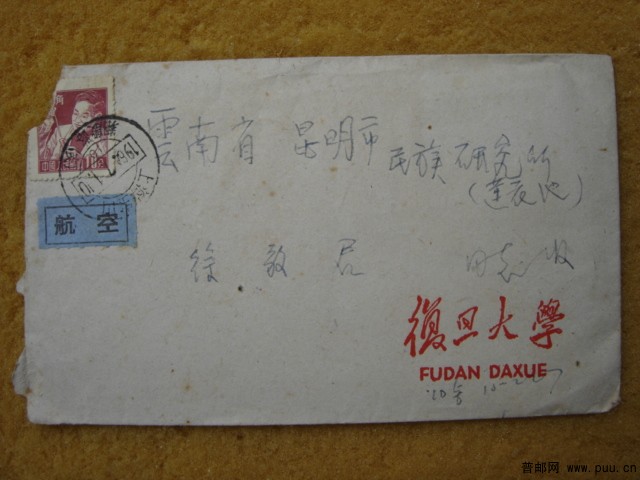 雲南省 昆明市
民族研究所
(蓮花池)
航空
徐 敦 君 同志 收
復旦大學
FUDAN DAXUE
普邮网 www.puu.cn